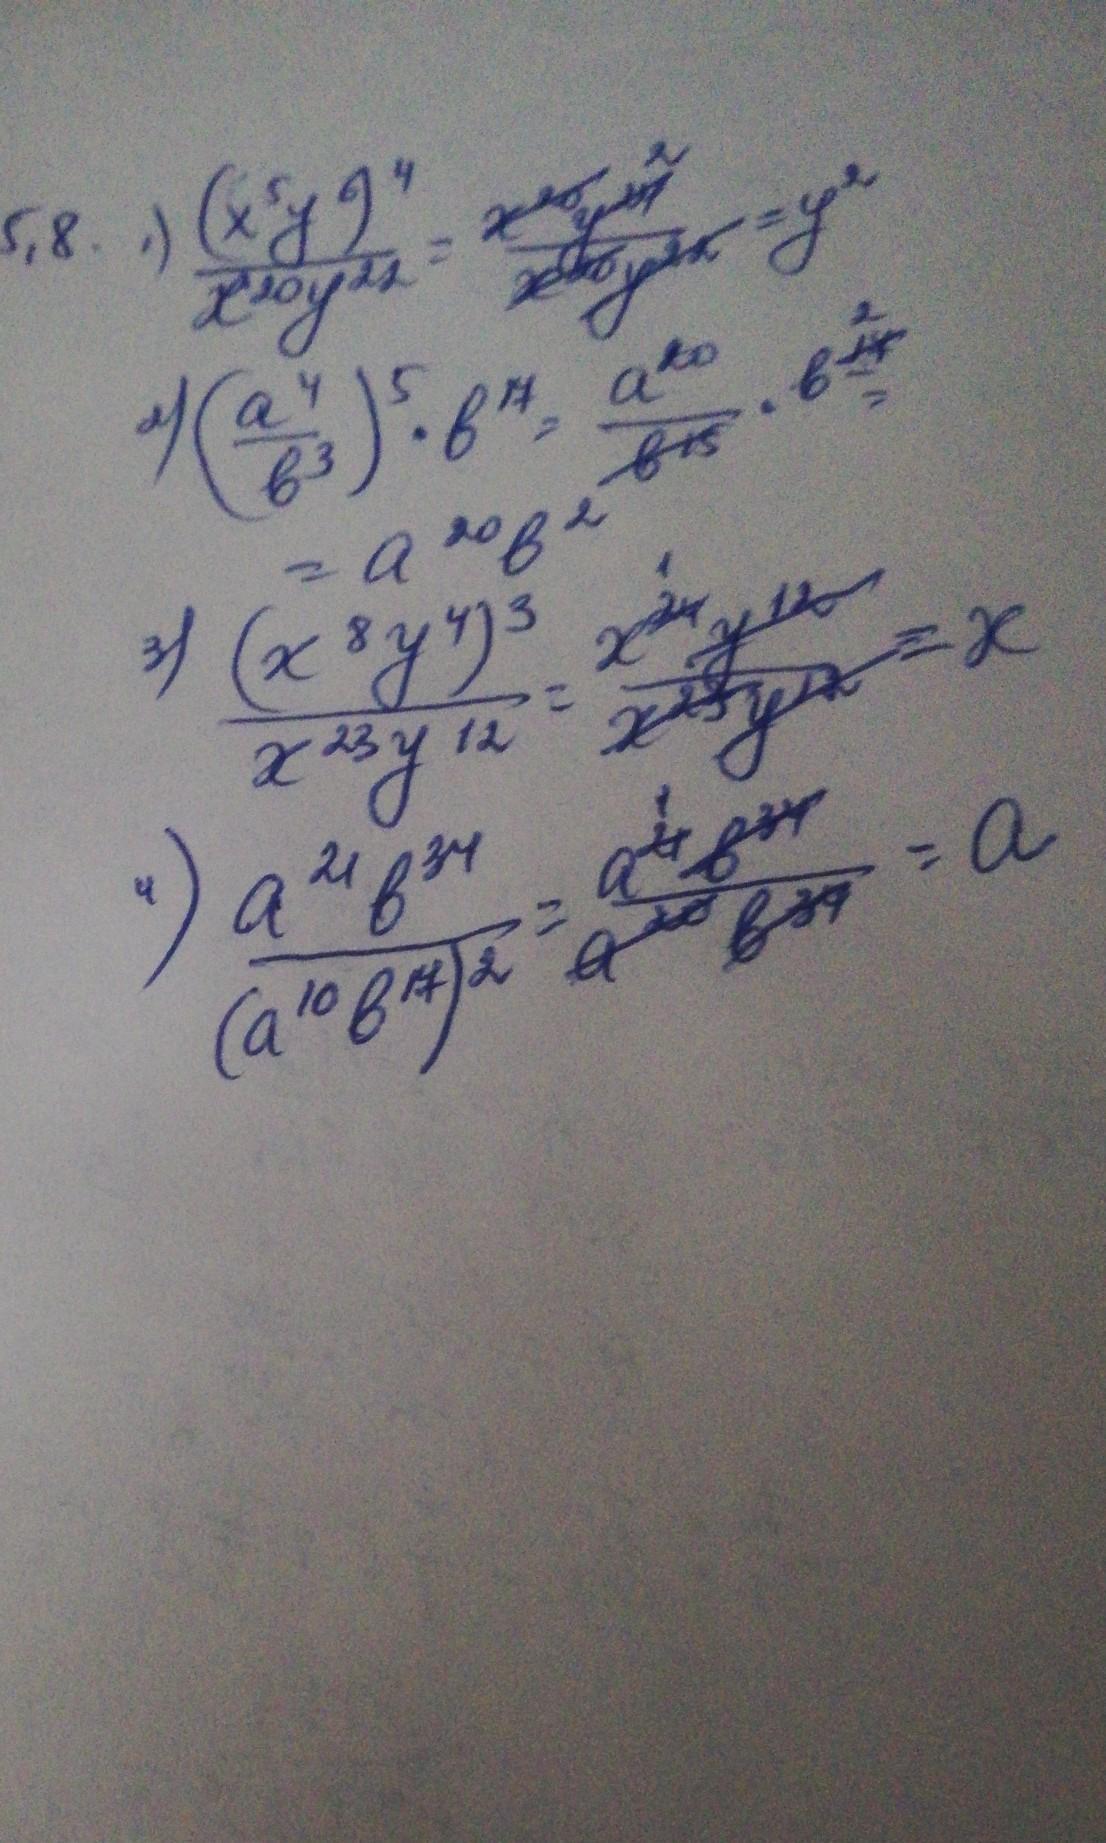 5,8. 1) (x⁵y⁶)⁴/x²⁰y²² = x²⁰y²⁴ ²/x²⁰y²² = y²
2) (a⁴/b³)⁵ · b¹⁷ = a²⁰/b¹⁵ · b¹⁷ ² =
= a²⁰b²
3) (x⁸y⁴)³/x²³y¹² = x²⁴ ¹y¹²/x²³y¹² = x
4) a²¹b³⁴/(a¹⁰b¹⁷)² = a²¹ ¹b³⁴/a²⁰b³⁴ = a